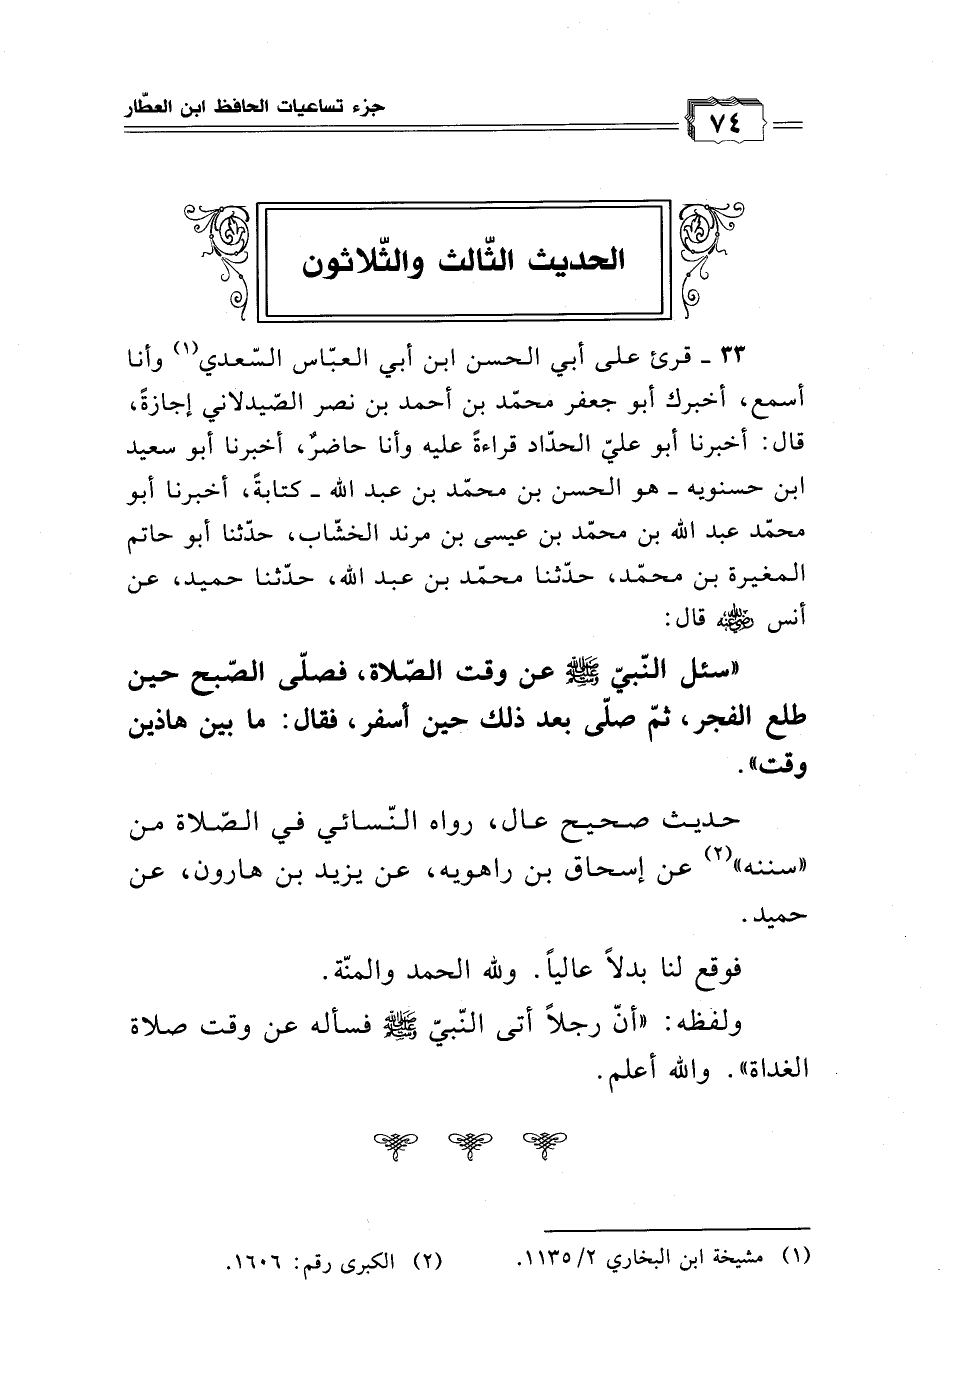 جزء تساعيات الحافظ ابن العطّار
٧٤
الحديث الثّالث والثّلاثون
٣٣ ـ قرئ على أبي الحسن ابن أبي العبّاس السّعدي(١) وأنا
أسمع، أخبرك أبو جعفر محمّد بن أحمد بن نصر الصّيدلاني إجازةً،
قال: أخبرنا أبو عليّ الحدّاد قراءةً عليه وأنا حاضرٌ، أخبرنا أبو سعيد
ابن حسنويه ـ هو الحسن بن محمّد بن عبد الله ـ كتابةً، أخبرنا أبو
محمّد عبد الله بن محمّد بن عيسى بن مرند الخشّاب، حدّثنا أبو حاتم
المغيرة بن محمّد، حدّثنا محمّد بن عبد الله، حدّثنا حميد، عن
أنس رضي الله عنه قال:
«سئل النّبيّ ﷺ عن وقت الصّلاة، فصلّى الصّبح حين
طلع الفجر، ثمّ صلّى بعد ذلك حين أسفر، فقال: ما بين هاذين
وقت».
حديث صحيح عال، رواه النّسائي في الصّلاة من
«سننه»(٢) عن إسحاق بن راهويه، عن يزيد بن هارون، عن
حميد.
فوقع لنا بدلاً عالياً. ولله الحمد والمنّة.
ولفظه: «أنّ رجلاً أتى النّبيّ ﷺ فسأله عن وقت صلاة
الغداة». والله أعلم.
(١) مشيخة ابن البخاري ١١٣٥/٢.
(٢) الكبرى رقم: ١٦٠٦.